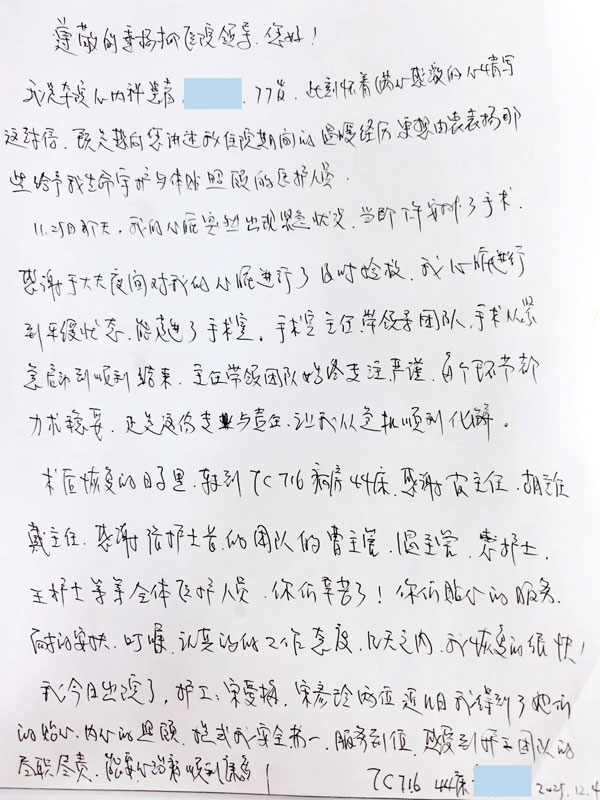 尊敬的垂杨柳医院领导、您好！
我是本院心内科患者 77岁，此刻怀着满心感激的心情写
这封信、既是想向您讲述我住院期间的温暖经历 更想由衷表扬那
些给予我生命守护与体贴照顾的医护人员.
11.25日 天，我的心脏突然出现紧急状况，当即 安排了手术.
感谢于大夫夜间对我的心脏进行了及时抢救、我心脏进行
到平缓状态、能 了手术室。手术室主任带领团队、手术从紧
急启动到顺利结束、主任带领团队始终专注严谨、每个环节都
力求稳妥、正是这份专业与责任、让我从危机顺利化解。
术后恢复的日子里、转到7C716病房44床、感谢 主任、胡主任
戴主任、感谢张护士长的团队的曹主管、温主管、 护士、
王护士等等全体医护人员、你们辛苦了！你们贴心的服务、
的安抚、叮嘱、认真的的工作态度、几天之内、我恢复的很快！
我今日出院了、护工：宋爱梅、宋彦玲两位 近日我得到了她们
的贴心、内心的照顾、 我安全第一、服务到位、感受到护工团队的
尽职尽责、能 顺利康复！
7C716 44床 2025.12.4